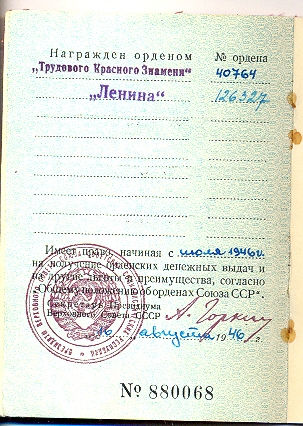 Награжден орденом № ордена
„Трудового Красного Знамени“ 40764
„Ленина“ 126327
Имеет право, начиная с июля 1946 г.
на получение орденских денежных выдач и
на другие льготы и преимущества, согласно
„Общему положению об орденах Союза ССР“.
Секретарь Президиума
Верховного Совета СССР А. Горкин
16 „ августа 1946 г.
№ 880068